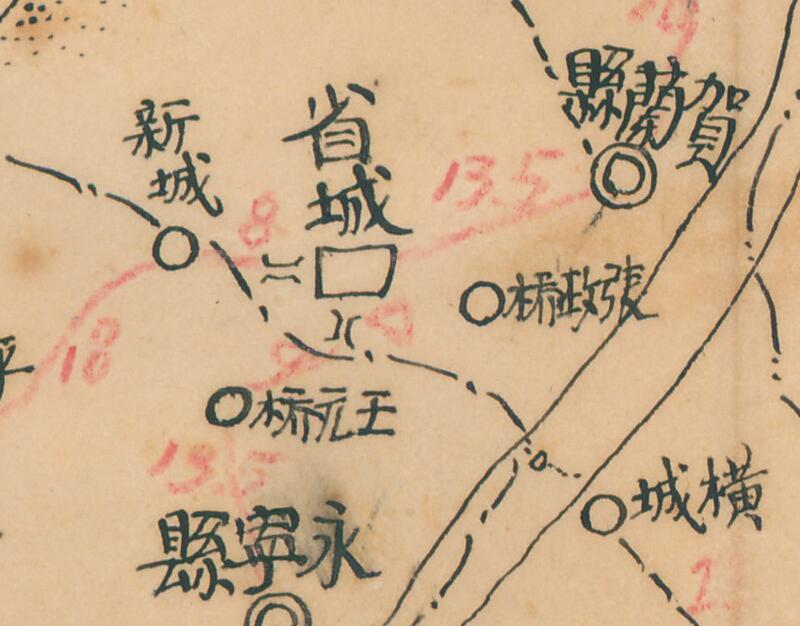 賀蘭縣
省城
新城
13.5
8
張政橋
18
王元橋
13.5
橫城
永寧縣